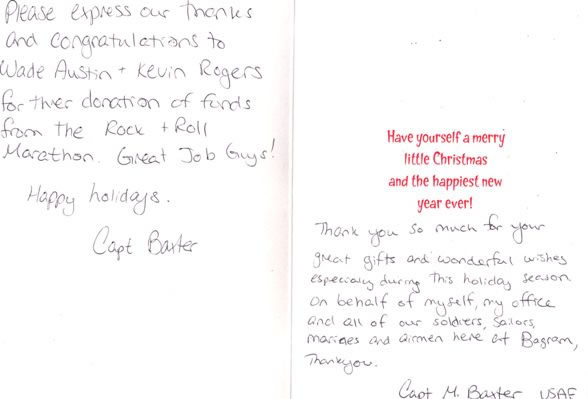 Please express our thanks
and congratulations to
Wade Austin + Kevin Rogers
for thier donation of funds
from the Rock + Roll
Marathon. Great Job Guys!
Happy holidays.
Capt Baxter
Have yourself a merry
little Christmas
and the happiest new
year ever!
Thank you so much for your
great gifts and wonderful wishes
especially during this holiday season
On behalf of myself, my office
and all of our soldiers, sailors,
marines and airmen here at Bagram,
Thankyou.
Capt M. Baxter USAF